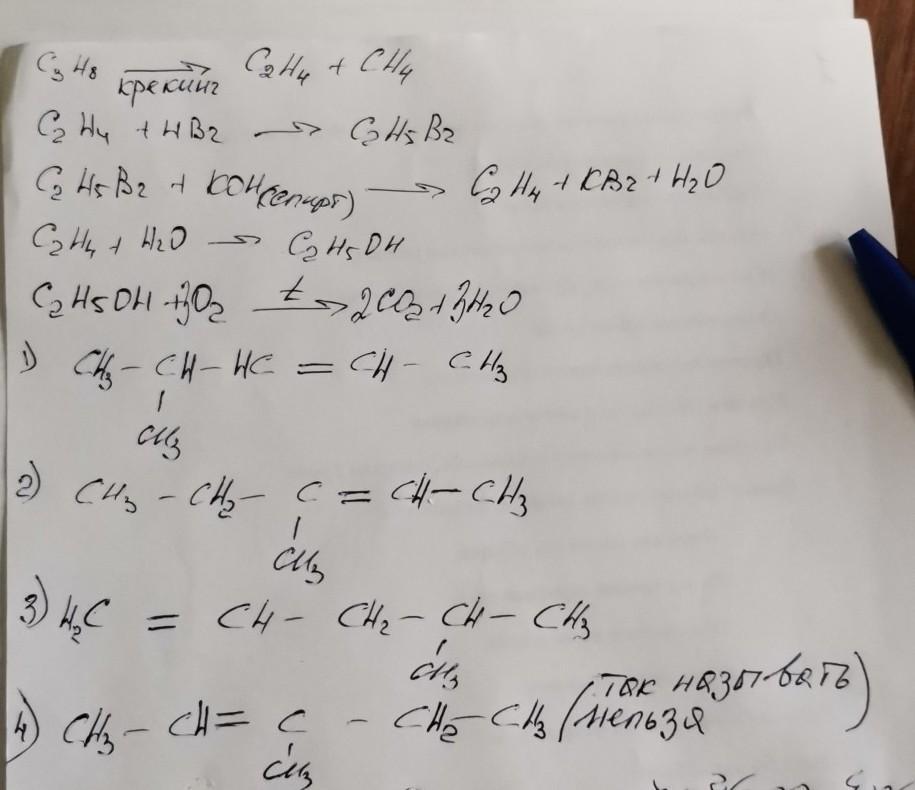 C₃H₈ ⟶ крекинг C₂H₄ + CH₄
C₂H₄ + HBr ⟶ C₂H₅Br
C₂H₅Br + KOH(спирт) ⟶ C₂H₄ + KBr + H₂O
C₂H₄ + H₂O ⟶ C₂H₅OH
C₂H₅OH + 3O₂ ⟶ t 2CO₂ + 3H₂O
1) CH₃ – CH – HC = CH – CH₃
CH₃
2) CH₃ – CH₂ – C = CH – CH₃
CH₃
3) H₂C = CH – CH₂ – CH – CH₃
CH₃
4) CH₃ – CH = C – CH₂ – CH₃ (так называть нельзя)
CH₃